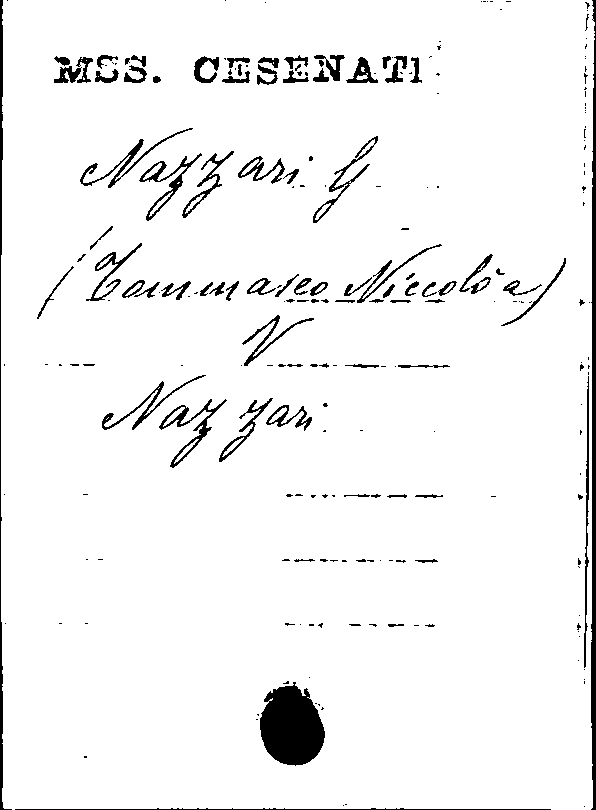 MSS. CESENATI
Nazzari G
(Tommaseo Niccolò a)
V
Nazzari